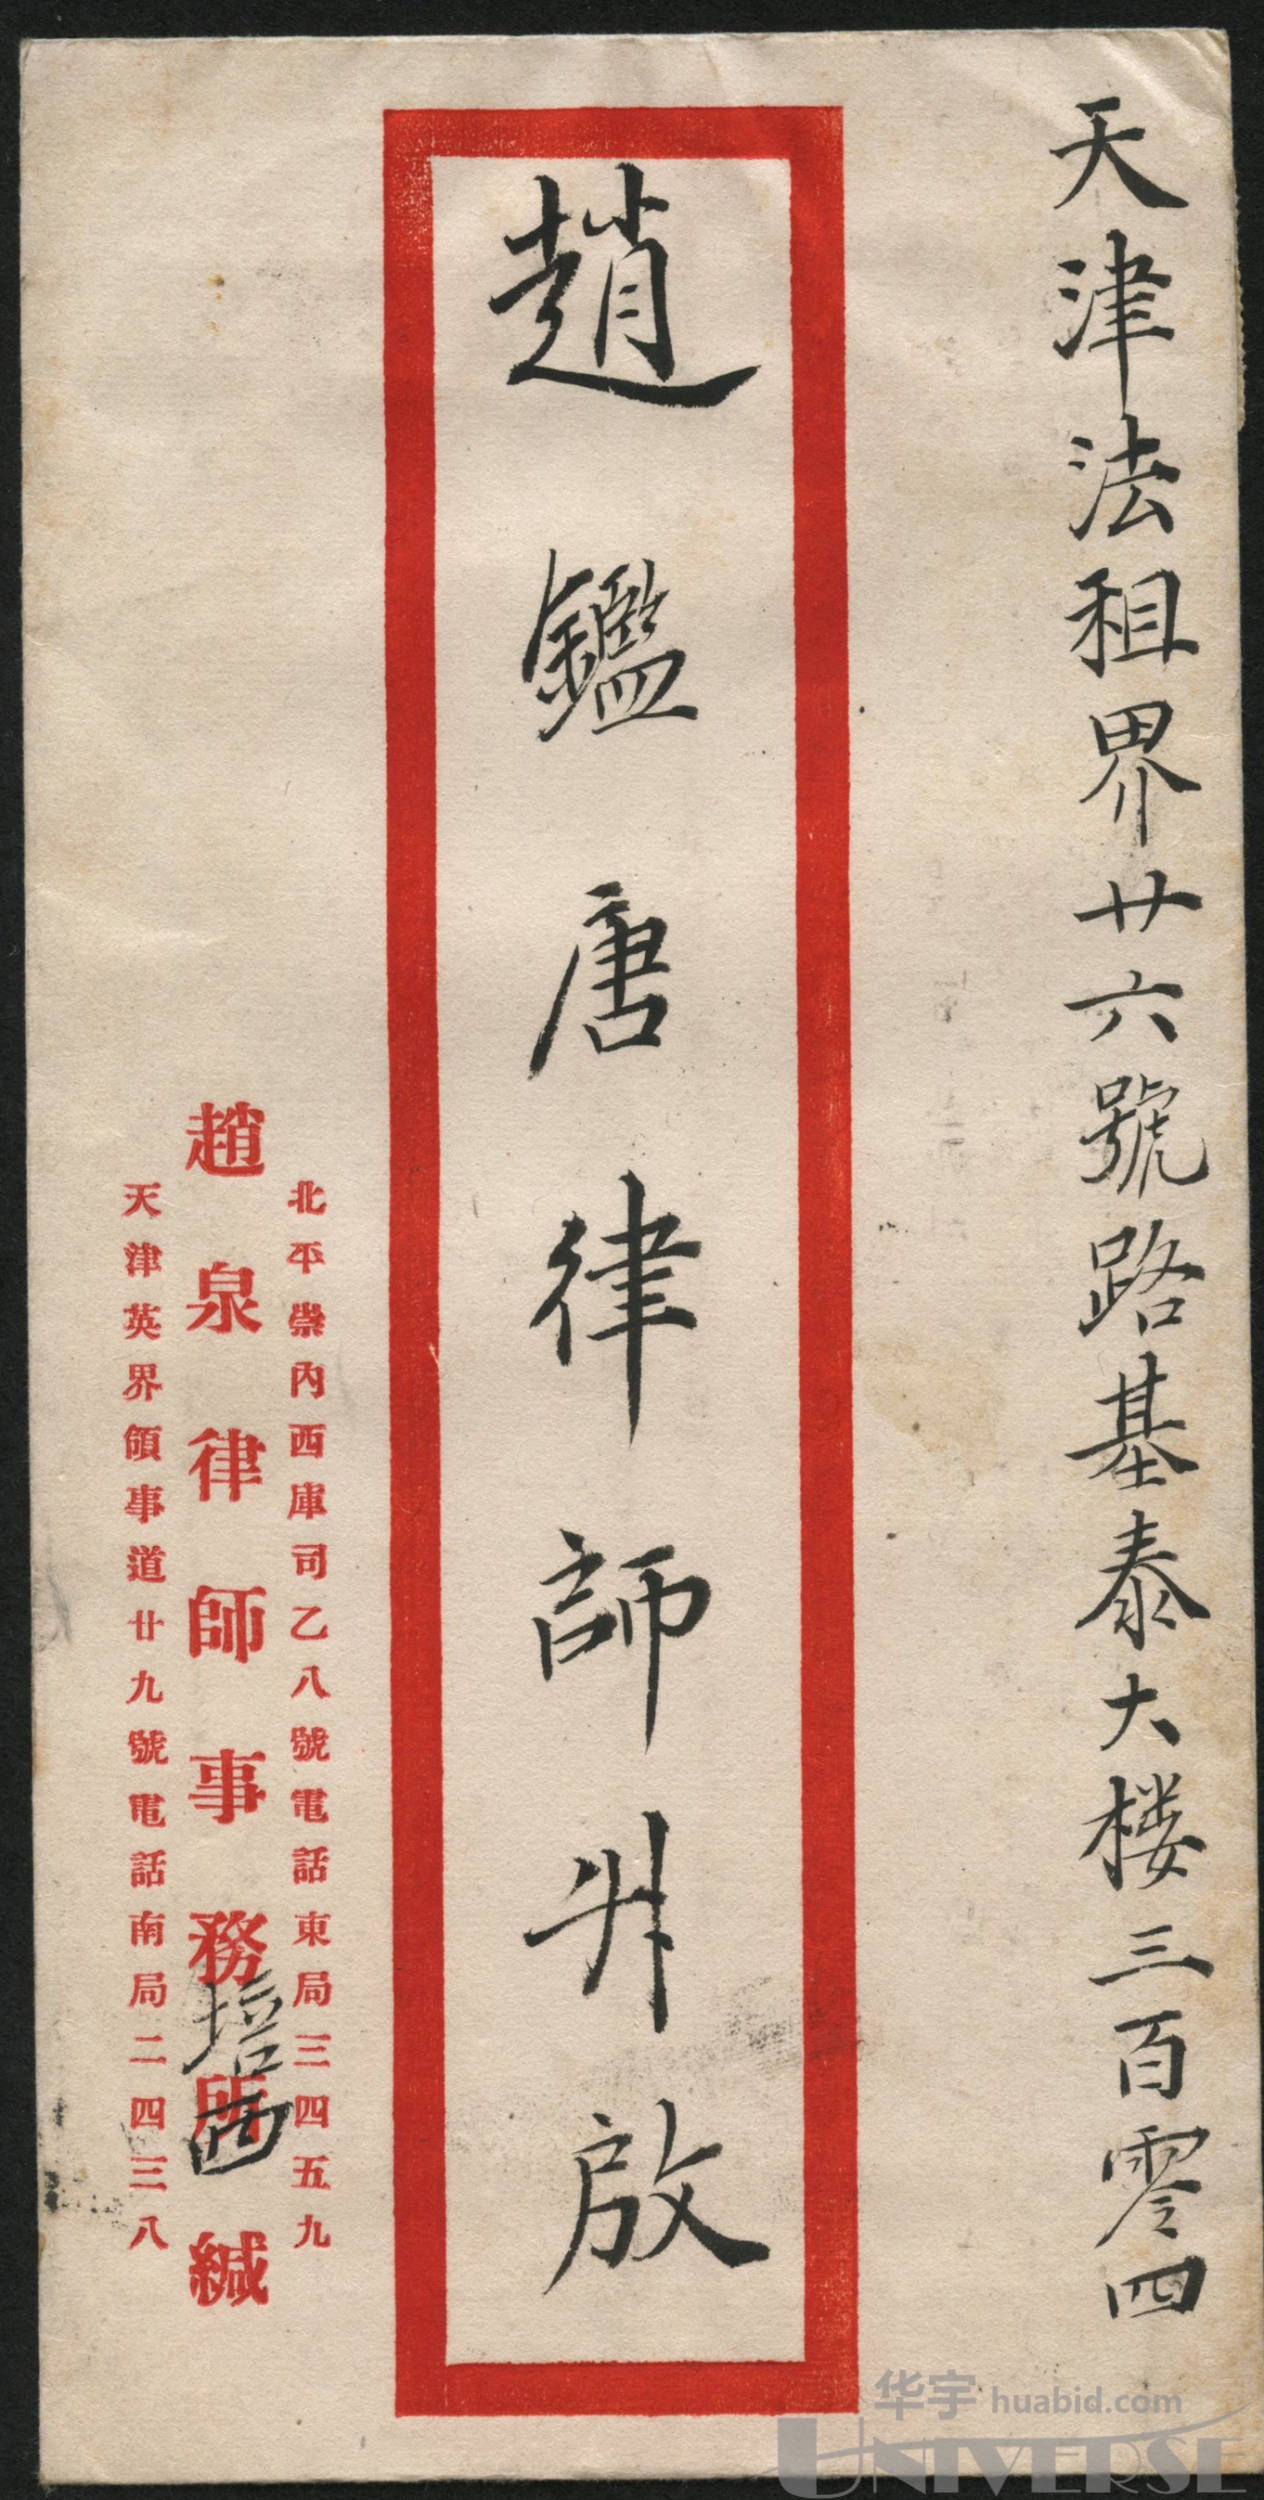 天津法租界廿六號路基泰大楼三百零四
趙鑑唐律師升啟
北平崇內西庫司乙八號電話東局三四五九
趙泉律師事務所緘
天津英界領事道廿九號電話南局二四三八
华宇 huabid.com
UNIVERSE